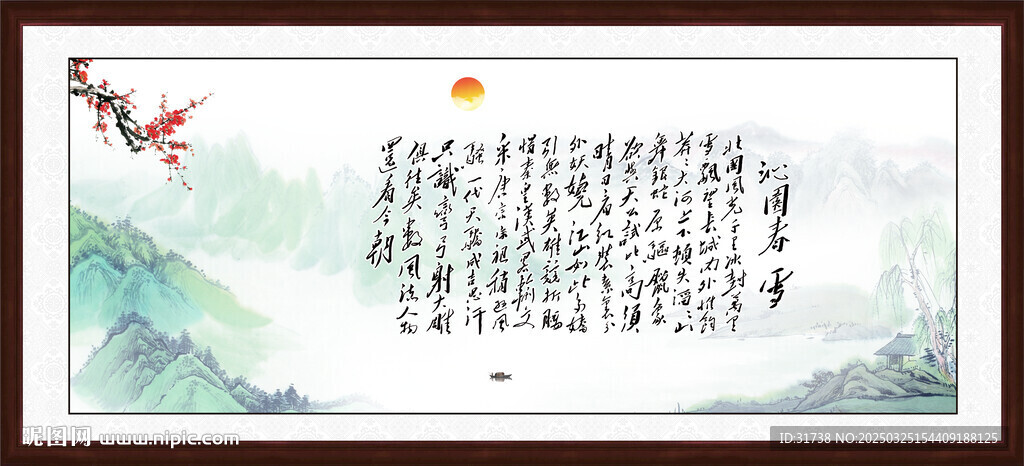 沁園春 雪
北國風光千里冰封萬里
雪飄望長城內外惟餘
莽〻大河上下頓失滔〻山
舞銀蛇原驅臘象
欲與天公試比高須
晴日看紅裝素裹分
外妖嬈江山如此多嬌
引無數英雄競折腰
惜秦皇漢武略輸文
采唐宗宋祖稍遜風
騷一代天驕成吉思汗
只識彎弓射大雕
俱往矣數風流人物
還看今朝
昵图网 www.nipic.com
ID:31738 NO:20250325154409188125